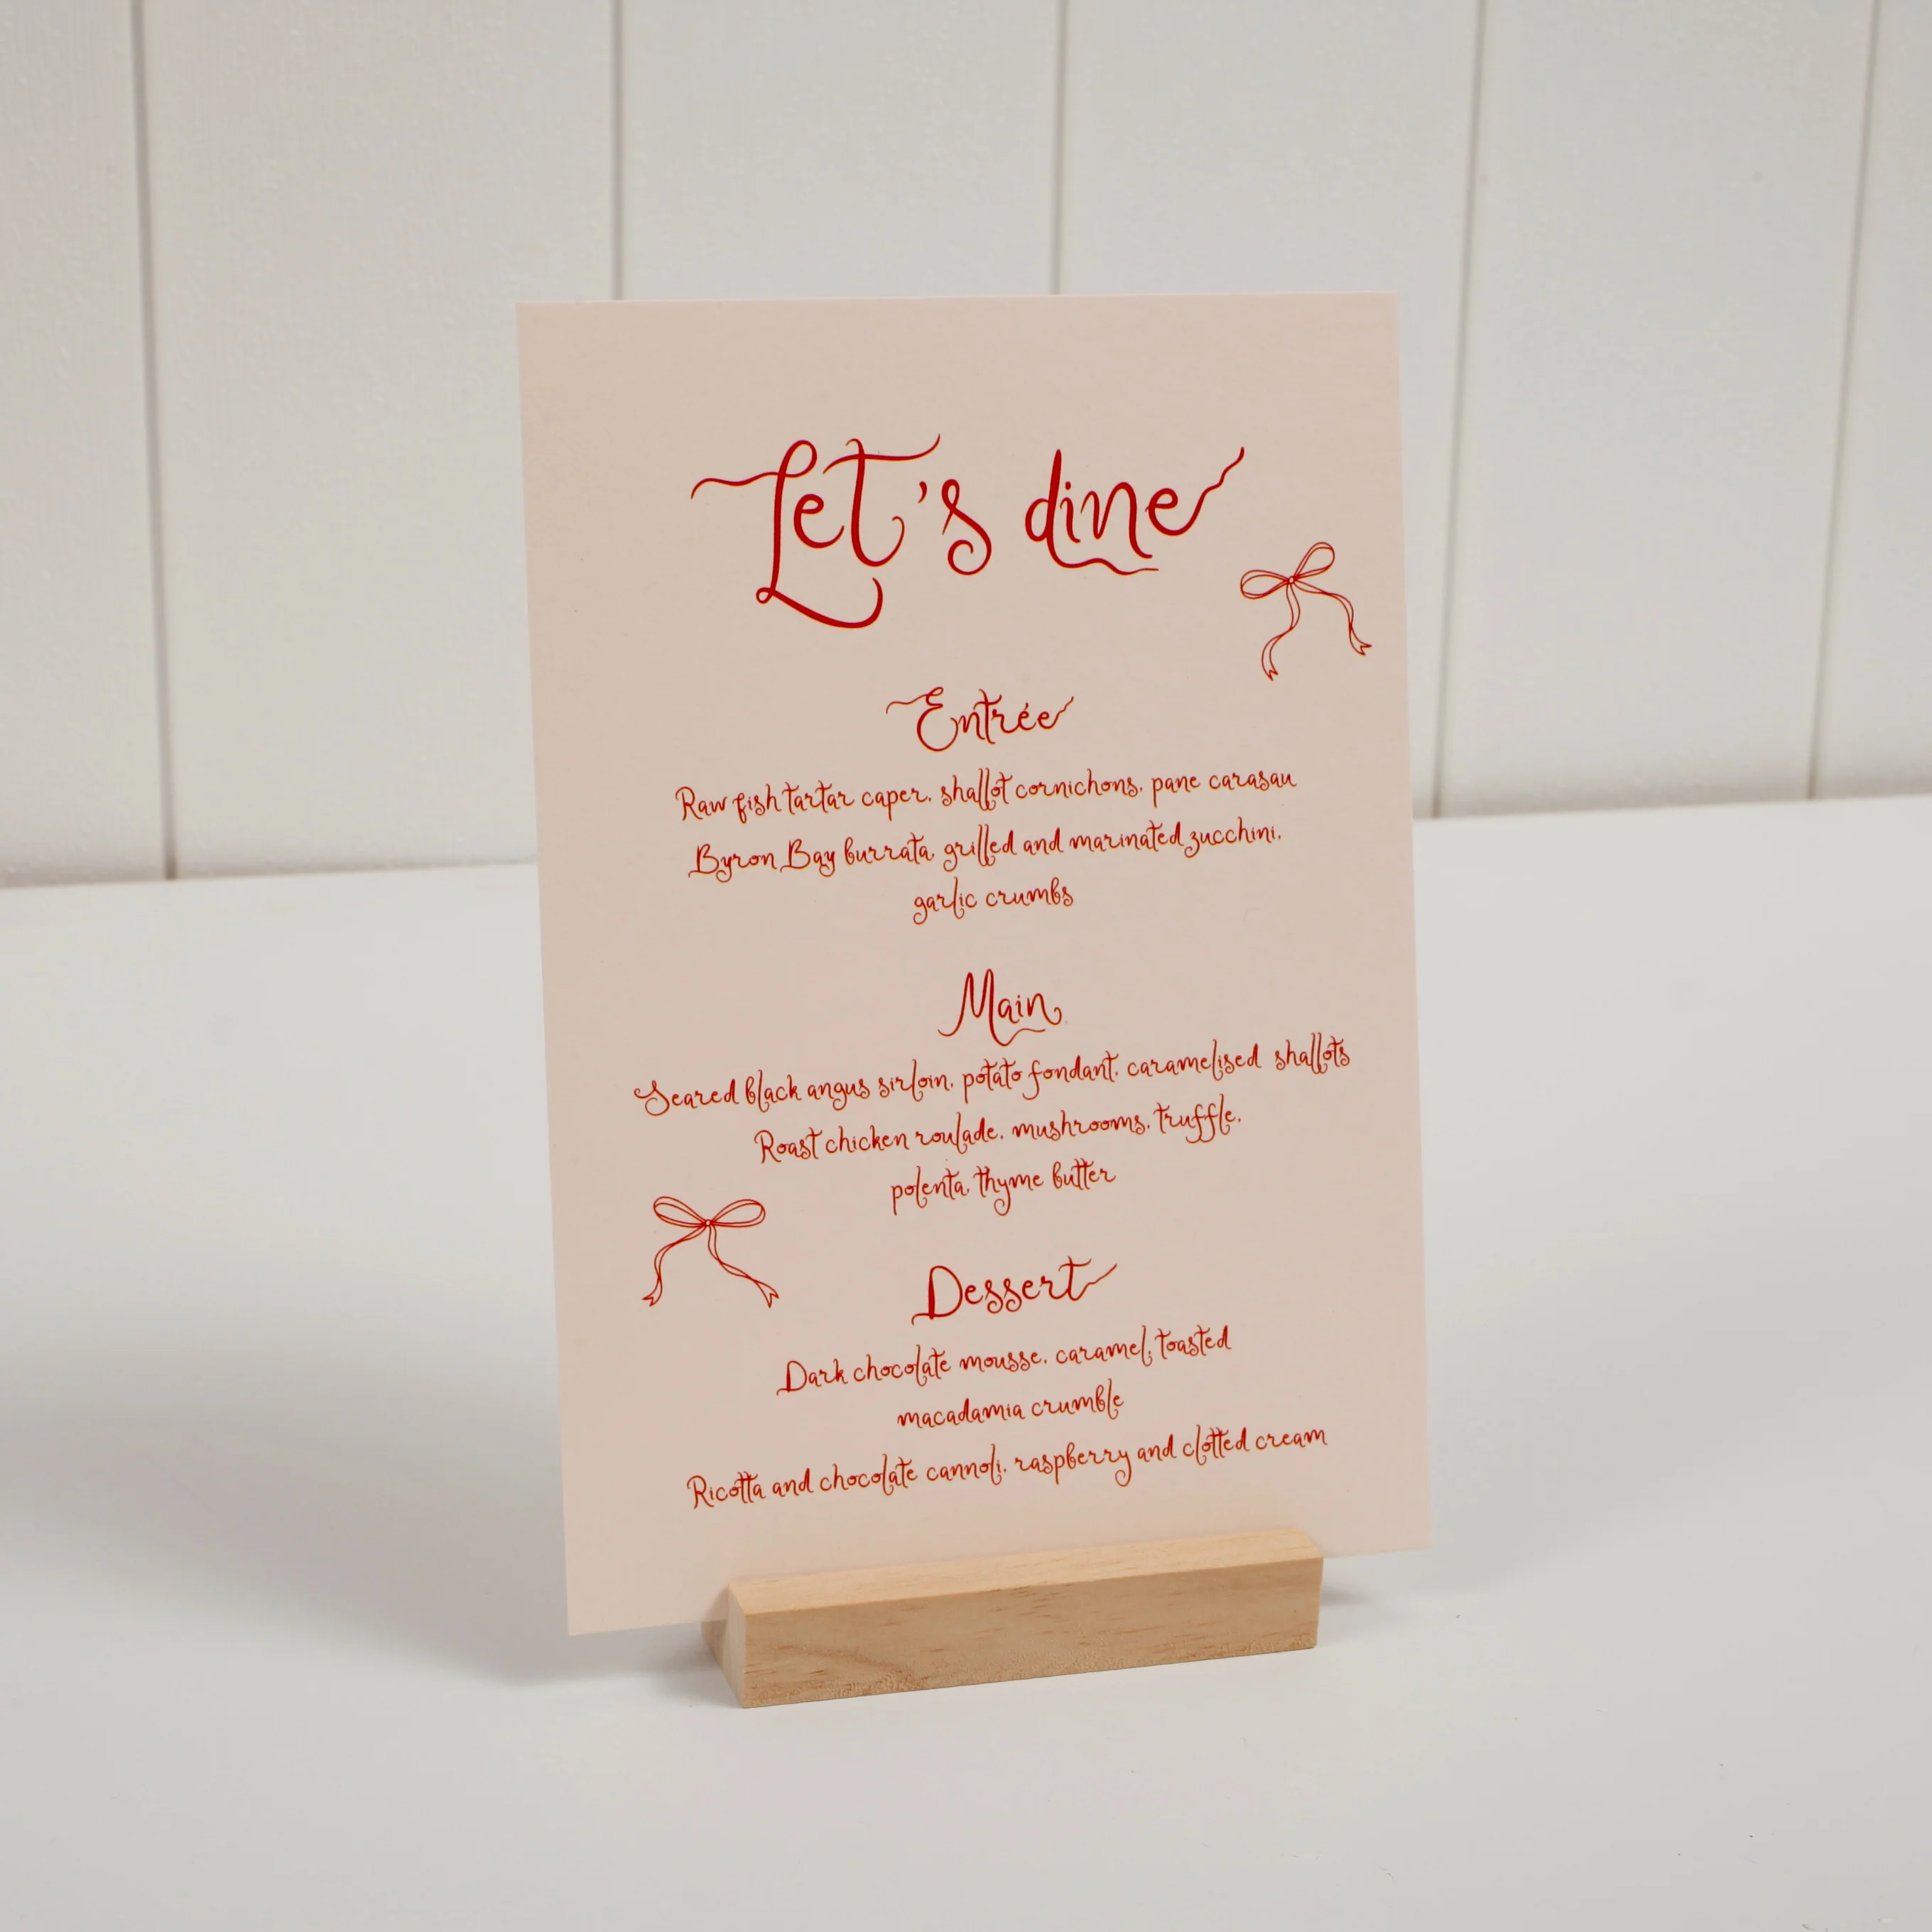 Let's dine
Entrée
Raw fish tartar caper, shallot cornichons, pane carasau
Byron Bay burrata, grilled and marinated zucchini,
garlic crumbs
Main
Seared black angus sirloin, potato fondant, caramelised shallots
Roast chicken roulade, mushrooms, truffle,
polenta, thyme butter
Dessert
Dark chocolate mousse, caramel, toasted
macadamia crumble
Ricotta and chocolate cannoli, raspberry and clotted cream